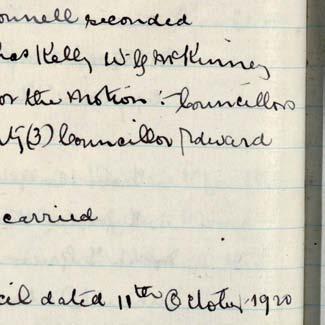 onnell seconded
has Kelly W G McKinney
or the Motion :- Councillors
ty (3) Councillor Edward
carried
cil dated 11th October 1920